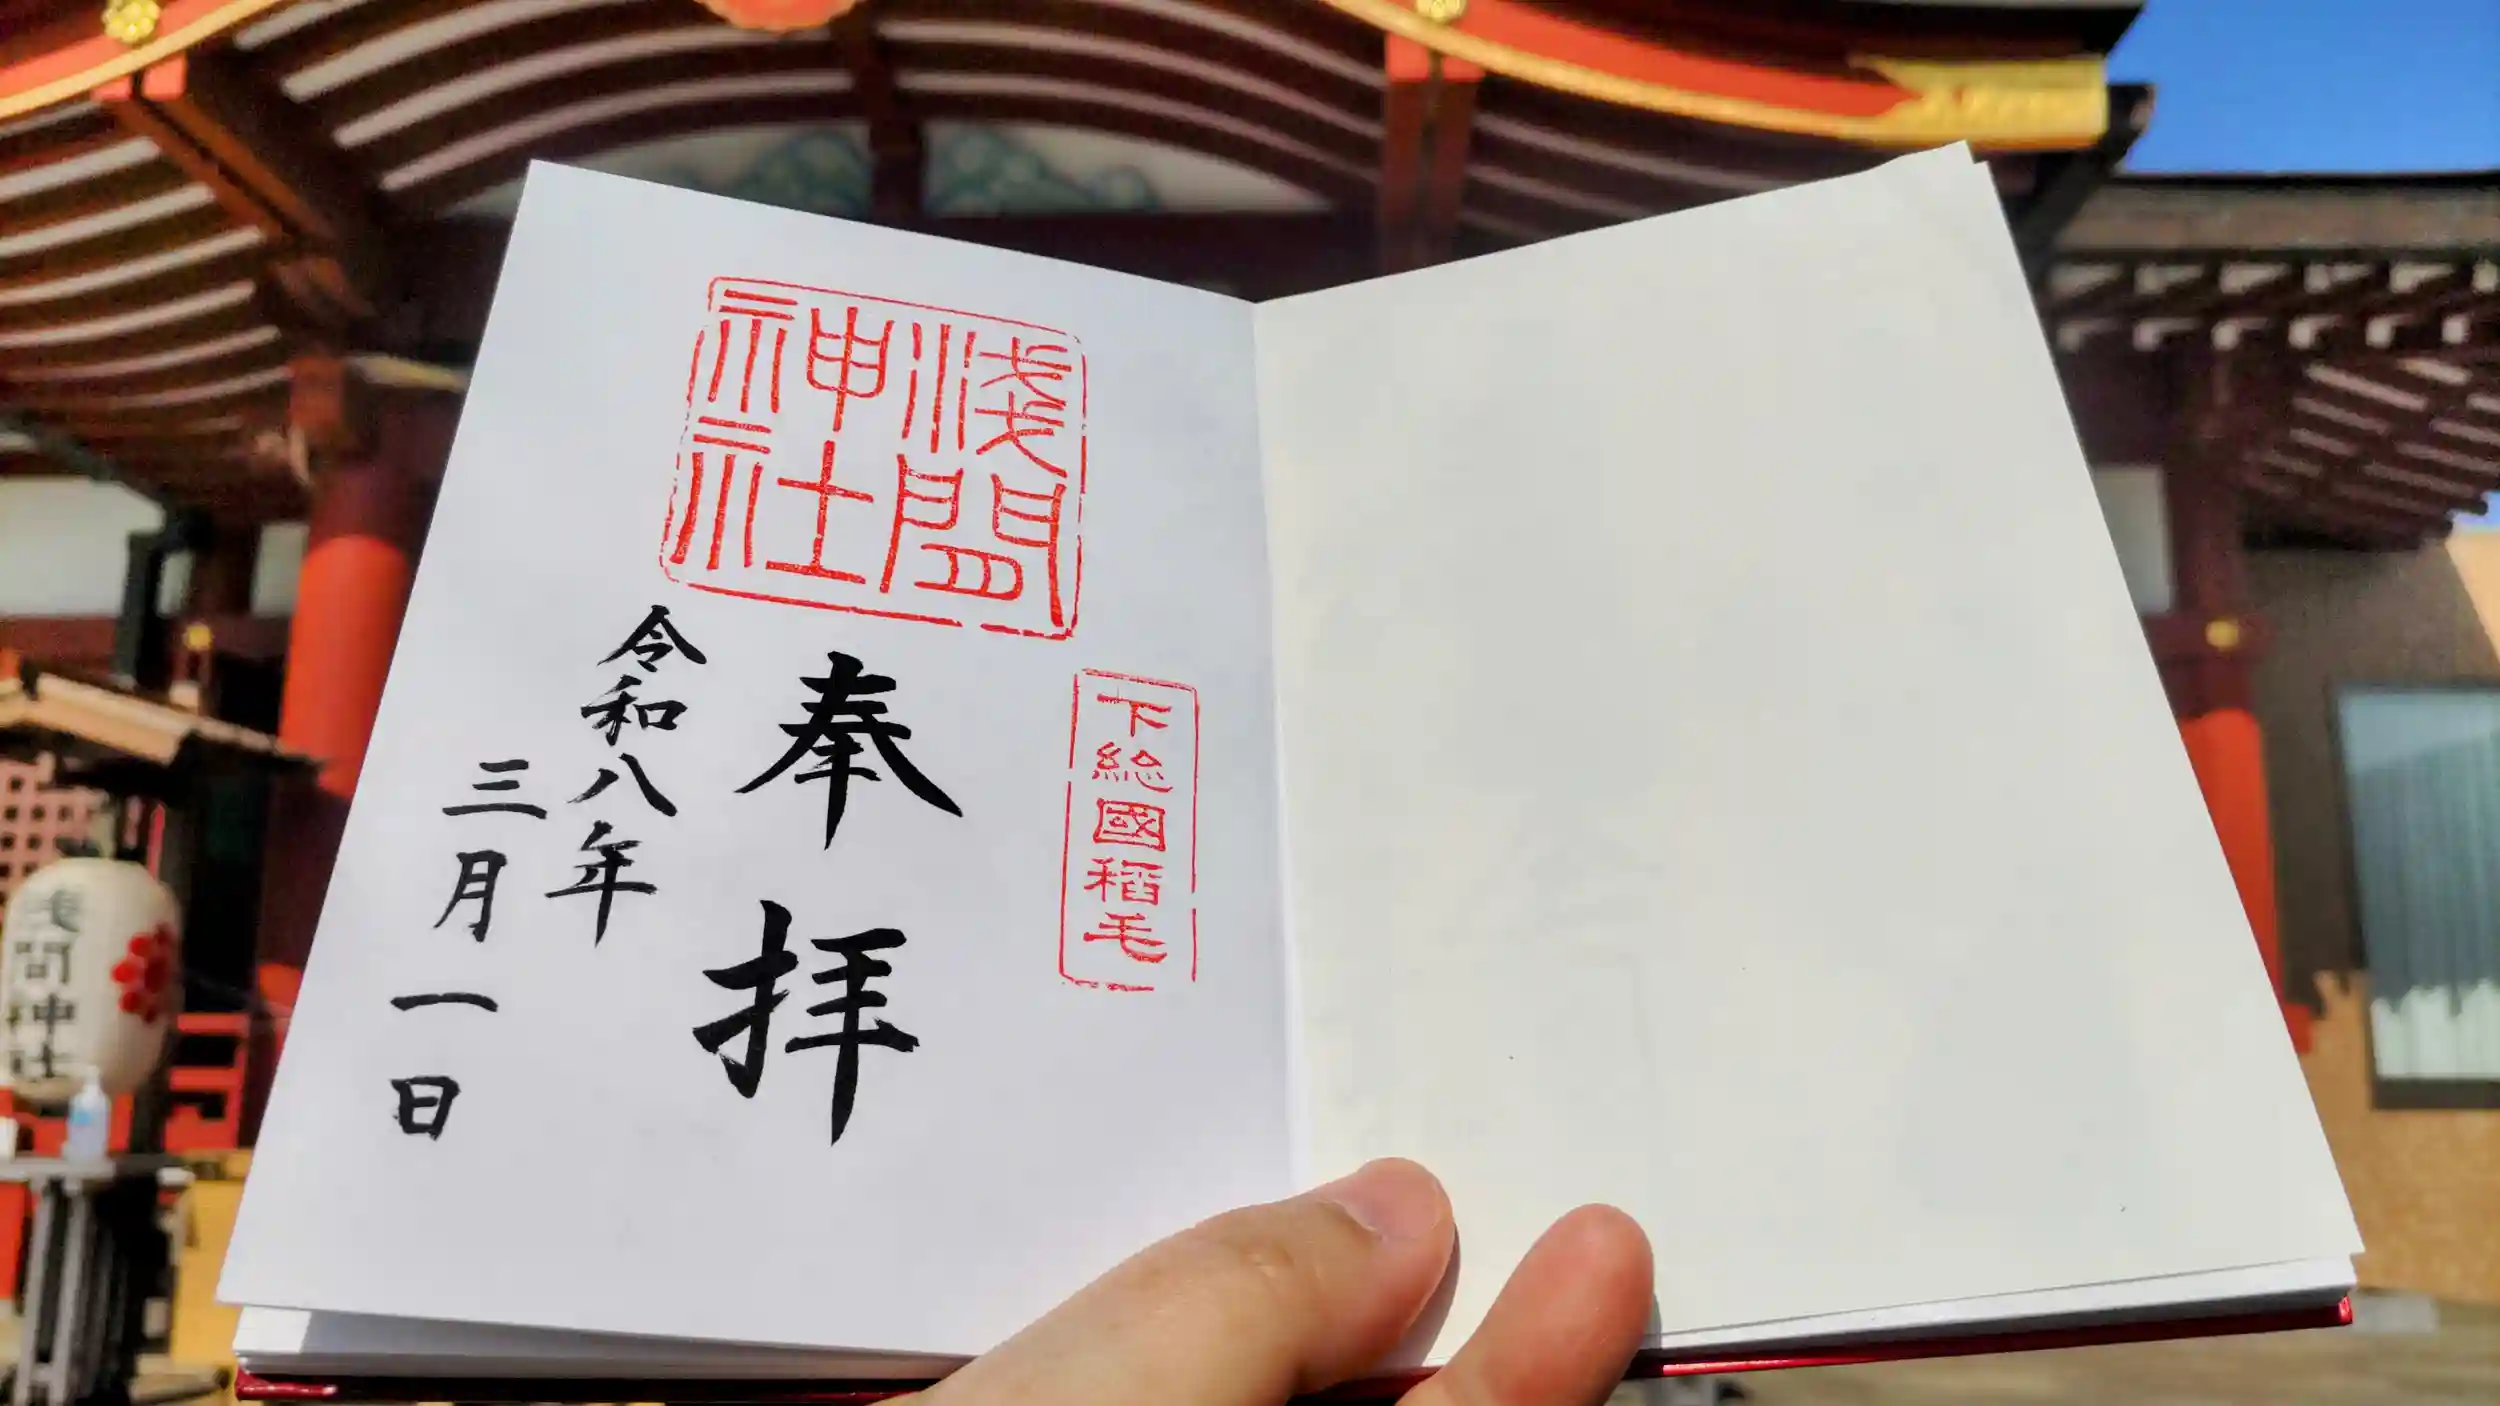 淺間
神社
下総國稲毛
奉拝
令和八年
三月一日
浅間神社